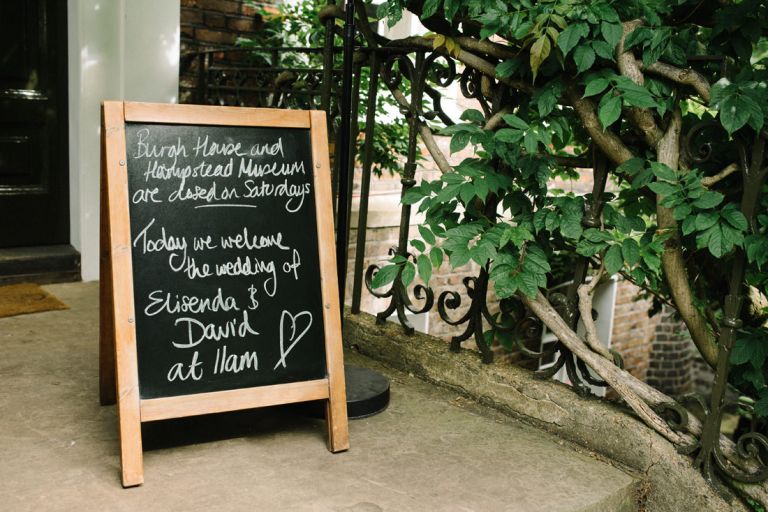 Burgh House and
Hampstead Museum
are closed on Saturdays
Today we welcome
the wedding of
Elisenda &
David
at 11am